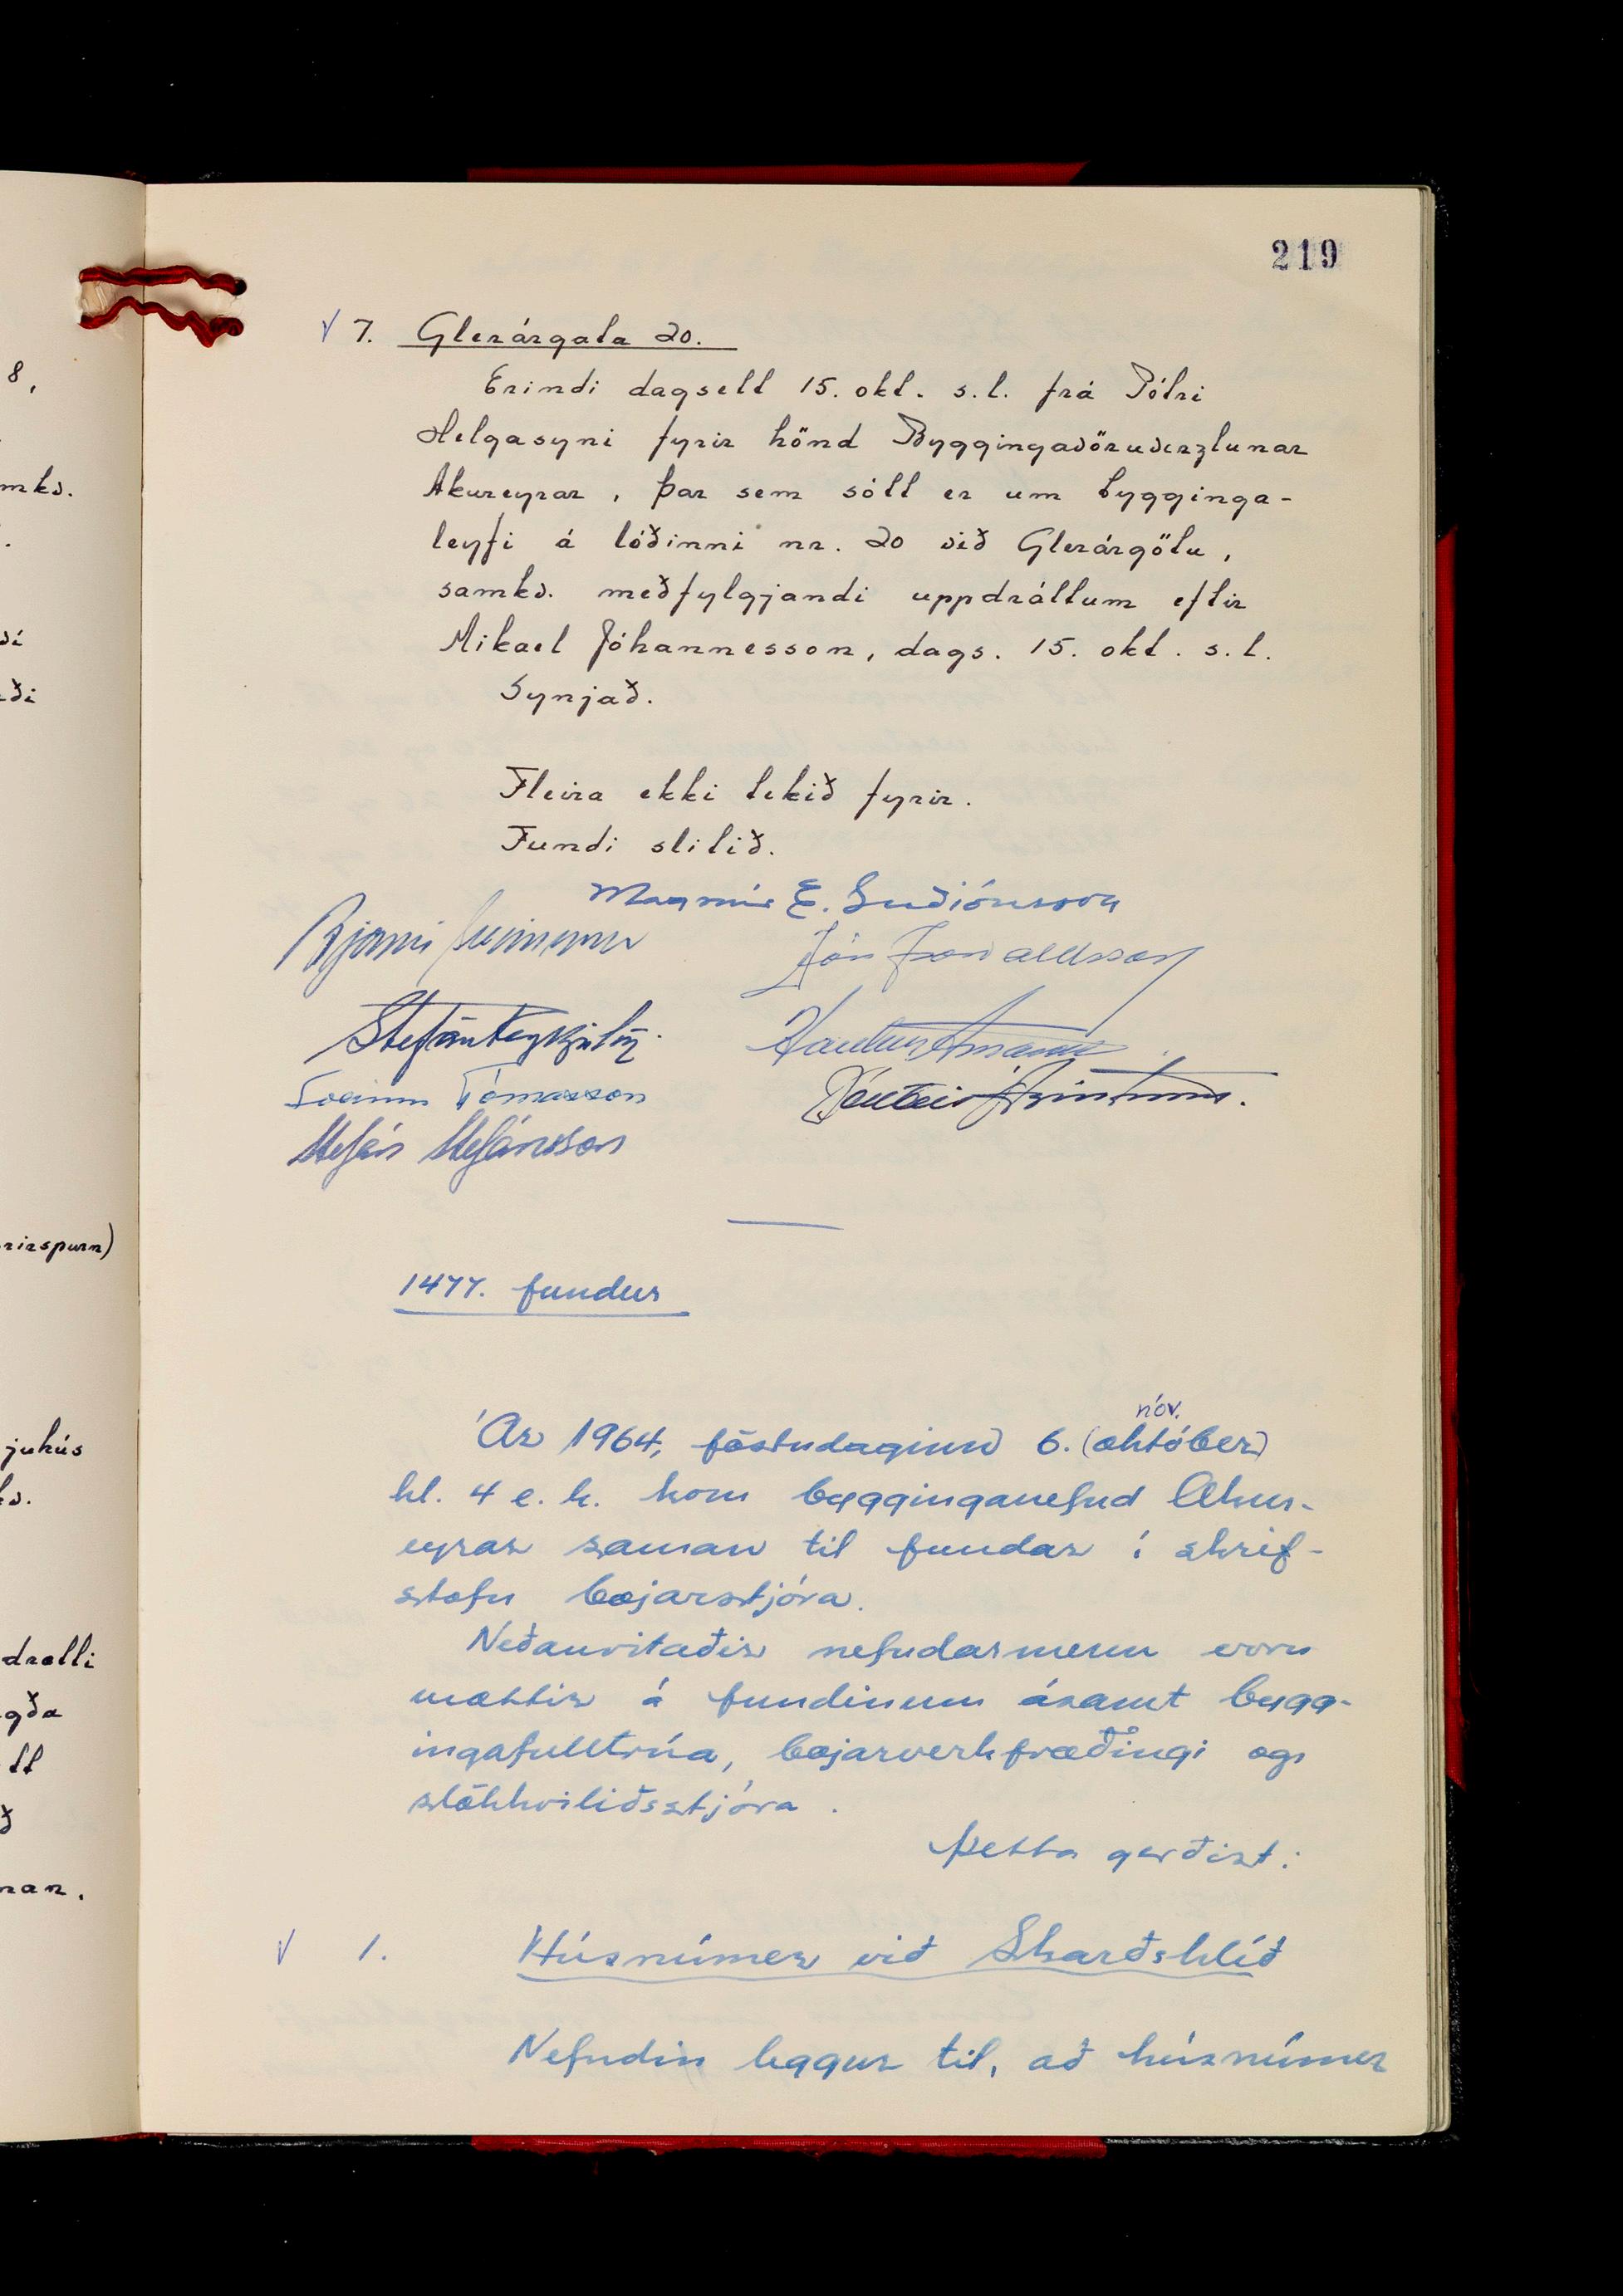 8,
mkv.
ví
ði
rirspurn)
júhús
kv.
drætti
gða
tt
ð
nar.
219
√ 7. Glerárgata 20.
Erindi dagsett 15. okt. s.l. frá Pétri
Helgasyni fyrir hönd Byggingavöruverzlunar
Akureyrar, þar sem sótt er um bygginga-
leyfi á lóðinni nr. 20 við Glerárgötu,
samkv. meðfylgjandi uppdráttum eftir
Mikael Jóhannesson, dags. 15. okt. s.l.
Synjað.
Fleira ekki tekið fyrir.
Fundi slitið.
Magnús E. Guðjónsson
Bjarni
Jón Þorvaldsson
Stefán Reykjalín
Haukur Árnason
Sveinn Tómasson
Stefán Stefánsson
1477. fundur
nóv.
Ár 1964, föstudaginn 6. (október)
kl. 4 e.h. kom bygginganefnd Akur-
eyrar saman til fundar í skrif-
stofu bæjarstjóra.
Neðanritaðir nefndarmenn voru
mættir á fundinum ásamt bygg-
ingafulltrúa, bæjarverkfræðingi og
slökkviliðsstjóra.
Þetta gerðist:
√ 1. Húsnúmer við Skarðshlíð
Nefndin leggur til, að húsnúmer